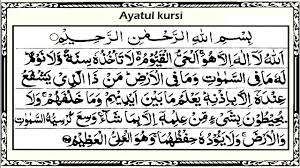 Ayatul kursi
بِسْمِ اللهِ الرَّحْمٰنِ الرَّحِيْمِ
اَللهُ لَآ اِلٰهَ اِلَّا هُوَ اَلْحَيُّ الْقَيُّوْمُ لَا تَأْخُذُهٗ سِنَةٌ وَّلَا نَوْمٌ
لَهٗ مَا فِي السَّمٰوٰتِ وَمَا فِي الْاَرْضِ مَنْ ذَا الَّذِيْ يَشْفَعُ
عِنْدَهٗٓ اِلَّا بِاِذْنِهٖ يَعْلَمُ مَا بَيْنَ اَيْدِيْهِمْ وَمَا خَلْفَهُمْ وَلَا
يُحِيْطُوْنَ بِشَيْءٍ مِّنْ عِلْمِهٖٓ اِلَّا بِمَا شَآءَ وَسِعَ كُرْسِيُّهُ السَّمٰوٰتِ
وَالْاَرْضَ وَلَا يَـُٔوْدُهٗ حِفْظُهُمَا وَهُوَ الْعَلِيُّ الْعَظِيْمُ